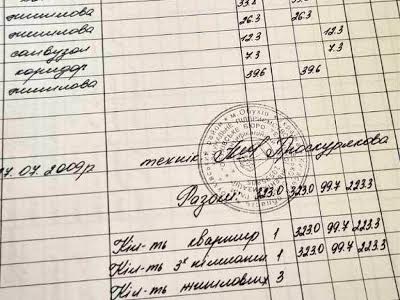 33.8 33.8
житлова 26.3 26.3
житлова 12.3 12.3
санвузол 7.3 7.3
коридор 39.6 39.6
житлова
07.2009р технік Проскурякова
Разом: 323.0 323.0 99.7 223.3
Кіл-ть квартир 1 323.0 99.7 223.3
Кіл-ть 3х кімнатних 1 323.0 99.7 223.3
Кіл-ть житлових 3